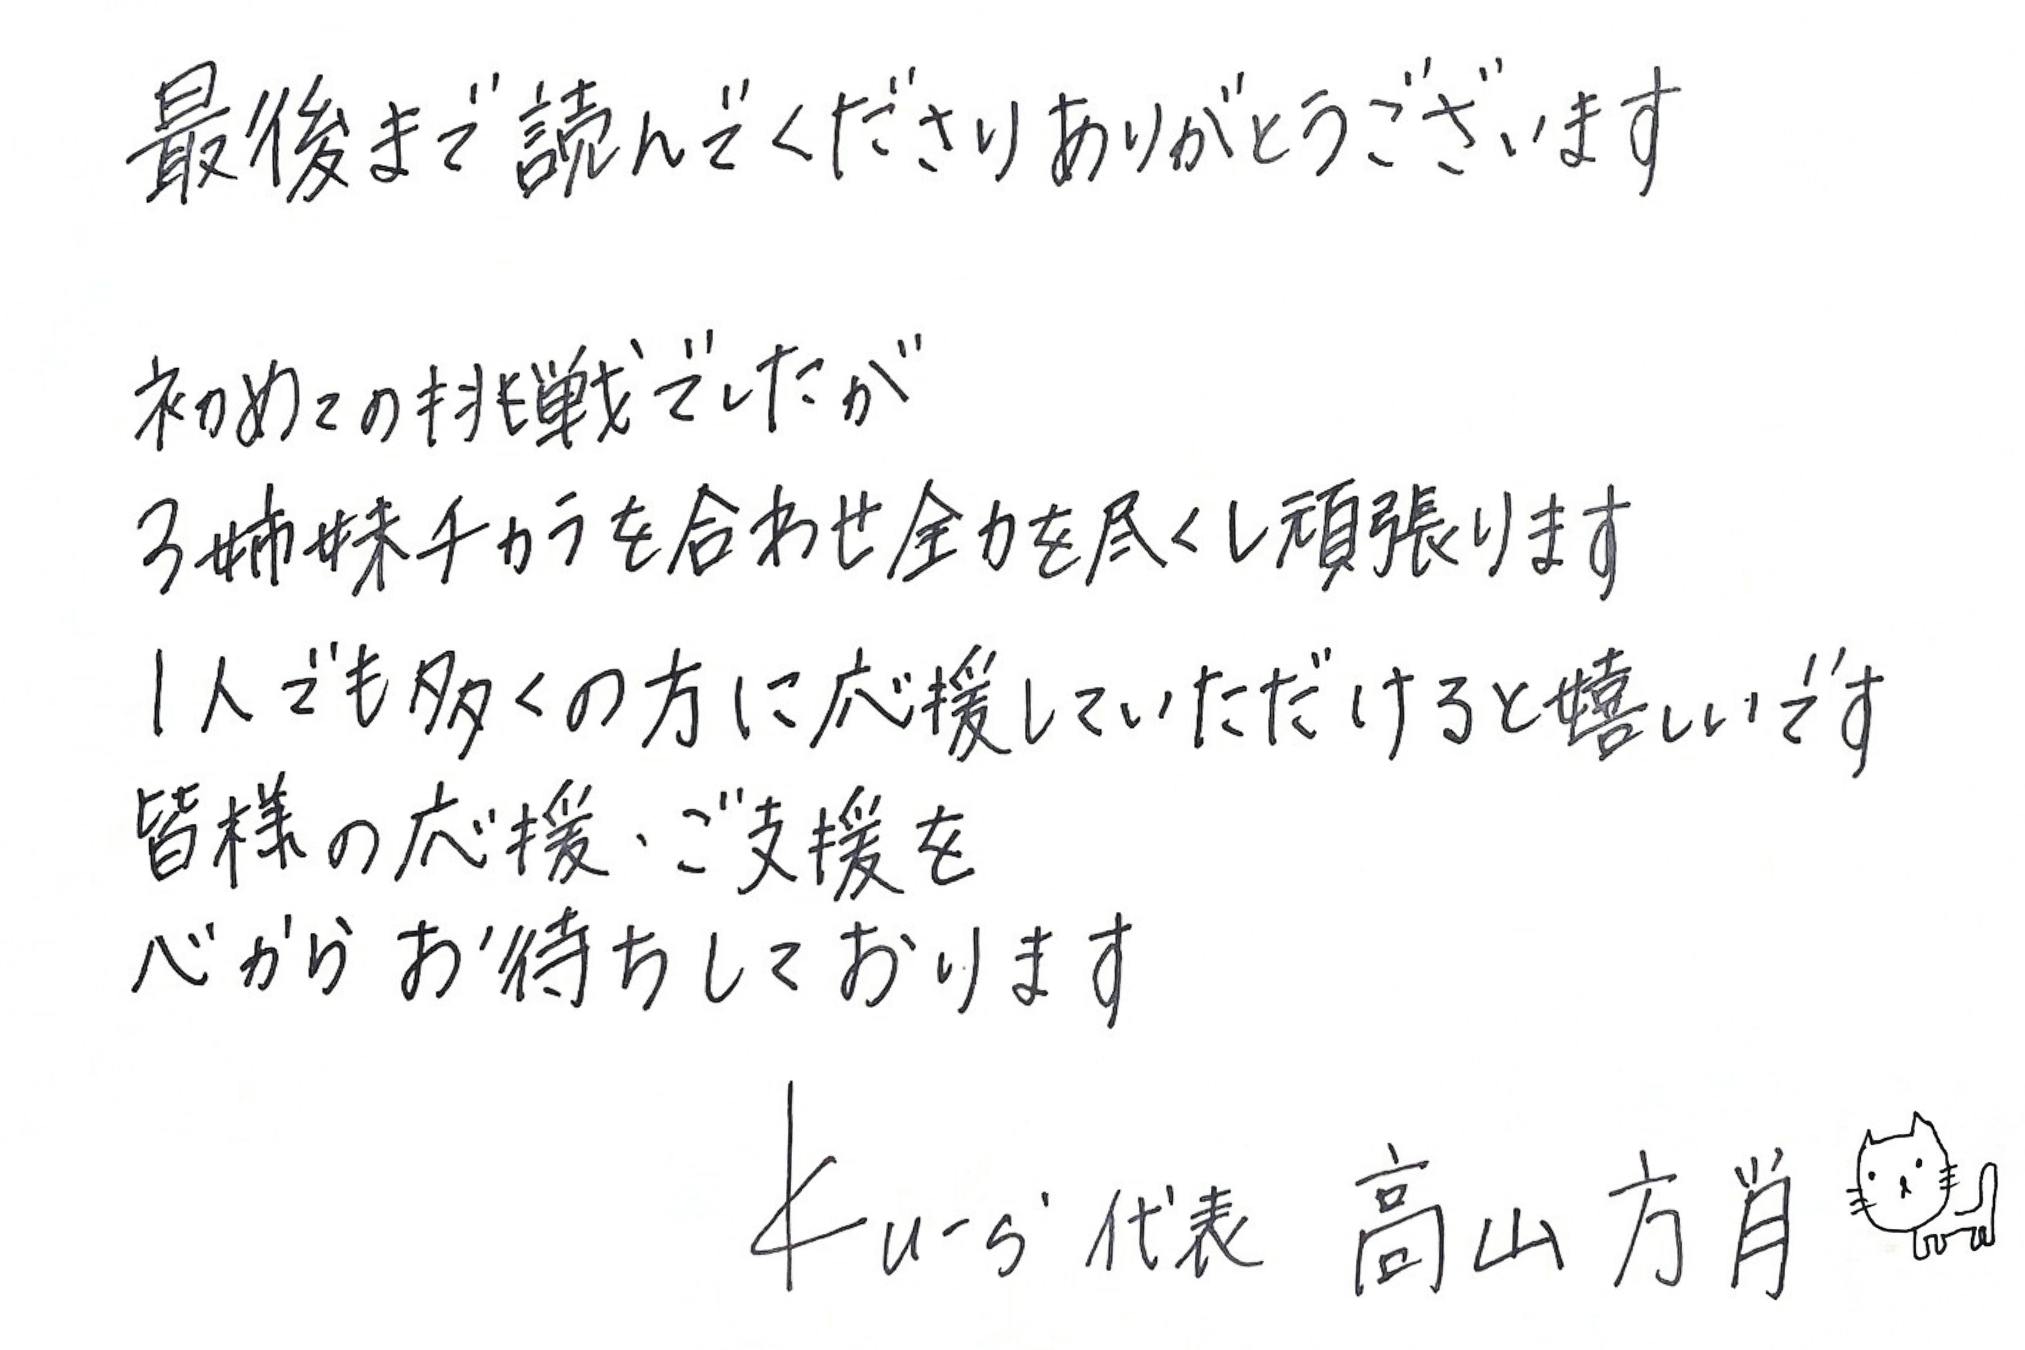 最後まで読んでくださりありがとうございます
初めての挑戦でしたが
3姉妹チカラを合わせ全力を尽くし頑張ります
1人でも多くの方に応援していただけると嬉しいです
皆様の応援・ご支援を
心からお待ちしております
代表 高山方肖